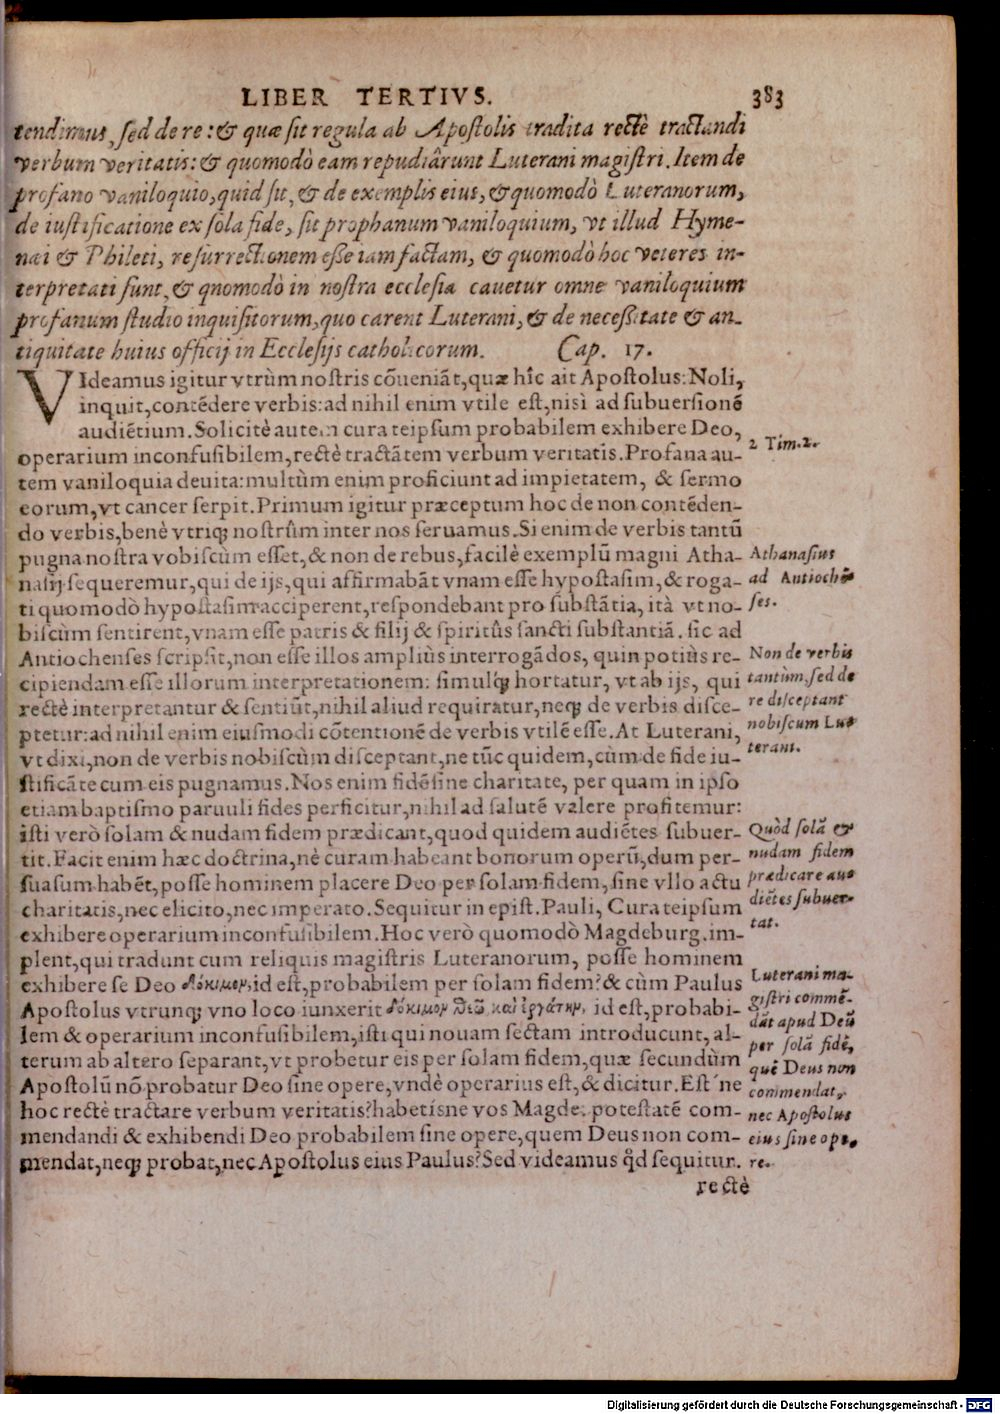 LIBER TERTIVS. 383
tendimus, sed de re: & quæ sit regula ab Apostolis tradita rectè tractandi
verbum veritatis: & quomodò eam repudiârunt Luterani magistri. Item de
profano vaniloquio, quid sit, & de exemplis eius, & quomodò Luteranorum,
de iustificatione ex sola fide, sit prophanum vaniloquium, vt illud Hyme-
nai & Phileti, resurrectionem esse iam factam, & quomodò hoc veteres in-
terpretati sunt, & qnomodò in nostra ecclesia cauetur omne vaniloquium
profanum studio inquisitorum, quo carent Luterani, & de necessitate & an-
tiquitate huius officij in Ecclesijs catholicorum. Cap. 17.
VIdeamus igitur vtrùm nostris cõueniãt, quæ hîc ait Apostolus: Noli,
inquit, contẽdere verbis: ad nihil enim vtile est, nisì ad subuersionẽ
audiẽtium. Solicitè autem cura teipsum probabilem exhibere Deo,
operarium inconfusibilem, rectè tractãtem verbum veritatis. Profana au-
tem vaniloquia deuita: multùm enim proficiunt ad impietatem, & sermo
eorum, vt cancer serpit. Primum igitur præceptum hoc de non contẽden-
do verbis, benè vtriq; nostrûm inter nos seruamus. Si enim de verbis tantũ
pugna nostra vobiscùm esset, & non de rebus, facilè exemplũ magni Atha-
nasij sequeremur, qui de ijs, qui affirmabãt vnam esse hypostasim, & roga-
ti quomodò hypostasim acciperent, respondebant pro substãtia, ità vt no-
biscùm sentirent, vnam esse patris & filij & spiritûs sancti substantiã. sic ad
Antiochenses scripsit, non esse illos ampliùs interrogãdos, quin potiùs re-
cipiendam esse illorum interpretationem: simulq; hortatur, vt ab ijs, qui
rectè interpretantur & sentiũt, nihil aliud requiratur, neq; de verbis disce-
ptetur: ad nihil enim eiusmodi cõtentionẽ de verbis vtilẽ esse. At Luterani,
vt dixi, non de verbis nobiscùm disceptant, ne tũc quidem, cùm de fide iu-
stificãte cum eis pugnamus. Nos enim fidẽ sine charitate, per quam in ipso
etiam baptismo paruuli fides perficitur, nihil ad salutẽ valere profitemur:
isti verò solam & nudam fidem prædicant, quod quidem audiẽtes subuer-
tit. Facit enim hæc doctrina, nè curam habeant bonorum operũ, dum per-
suasum habẽt, posse hominem placere Deo per solam fidem, sine vllo actu
charitatis, nec elicito, nec imperato. Sequitur in epist. Pauli, Cura teipsum
exhibere operarium inconfusibilem. Hoc verò quomodò Magdeburg. im-
plent, qui tradunt cum reliquis magistris Luteranorum, posse hominem
exhibere se Deo δόκιμον, id est, probabilem per solam fidem? & cùm Paulus
Apostolus vtrunq; vno loco iunxerit δόκιμον θεῶ καὶ ἐργάτην, id est, probabi-
lem & operarium inconfusibilem, isti qui nouam sectam introducunt, al-
terum ab altero separant, vt probetur eis per solam fidem, quæ secundùm
Apostolũ nõ probatur Deo sine opere, vndè operarius est, & dicitur. Est´ne
hoc rectè tractare verbum veritatis? habetísne vos Magde. potestatẽ com-
mendandi & exhibendi Deo probabilem sine opere, quem Deus non com-
mendat, neq; probat, nec Apostolus eius Paulus? Sed videamus qd̃ sequitur.
rectè
2 Tim. 2.
Athanasius
ad Antiochẽ
ses.
Non de verbis
tantùm, sed de
re disceptant
nobiscum Lu-
terani.
Quòd solã &
nudam fidem
prædicare au-
diẽtes subuer-
tat.
Luterani ma-
gistri commẽ-
dãt apud Deũ
per solã fidẽ,
quẽ Deus non
commendat,
nec Apostolus
eius sine ope-
re.
Digitalisierung gefördert durch die Deutsche Forschungsgemeinschaft - DFG